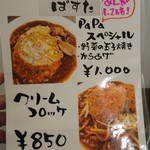 ぱすた
PaPa
スペシャル
・野菜の玉子焼き
・からあげ
¥1,000
クリーム
コロッケ
¥850